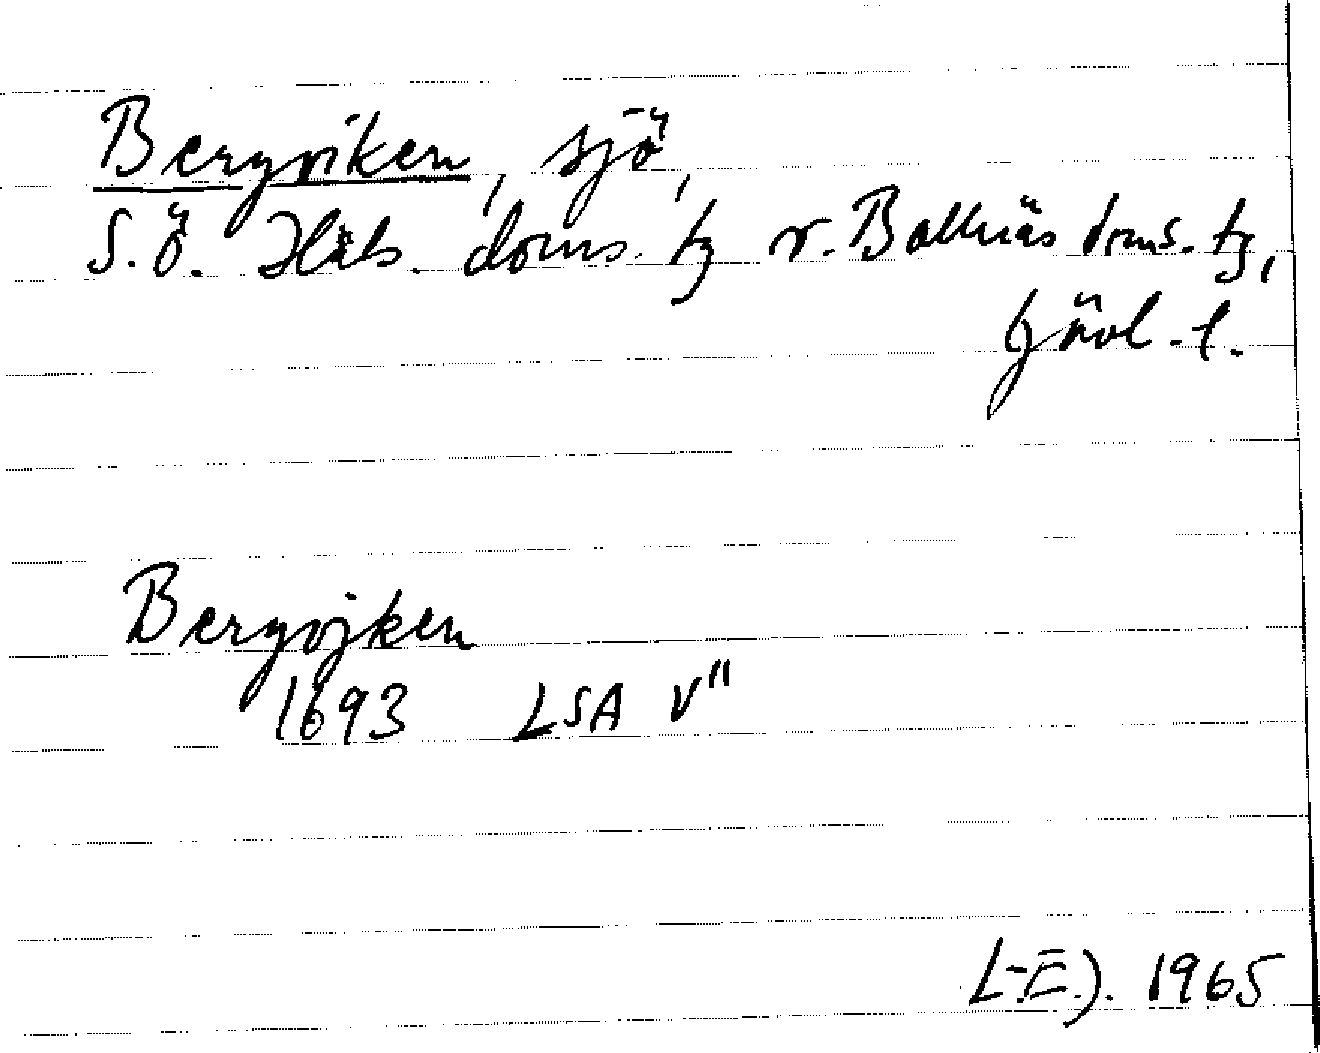 Bergviken, sjö,
S.Ö. Häls. doms. tg v. Bollnäs doms. tg,
Gävl. l.
Bergvijken
1693 LSA V"
L-E.J. 1965